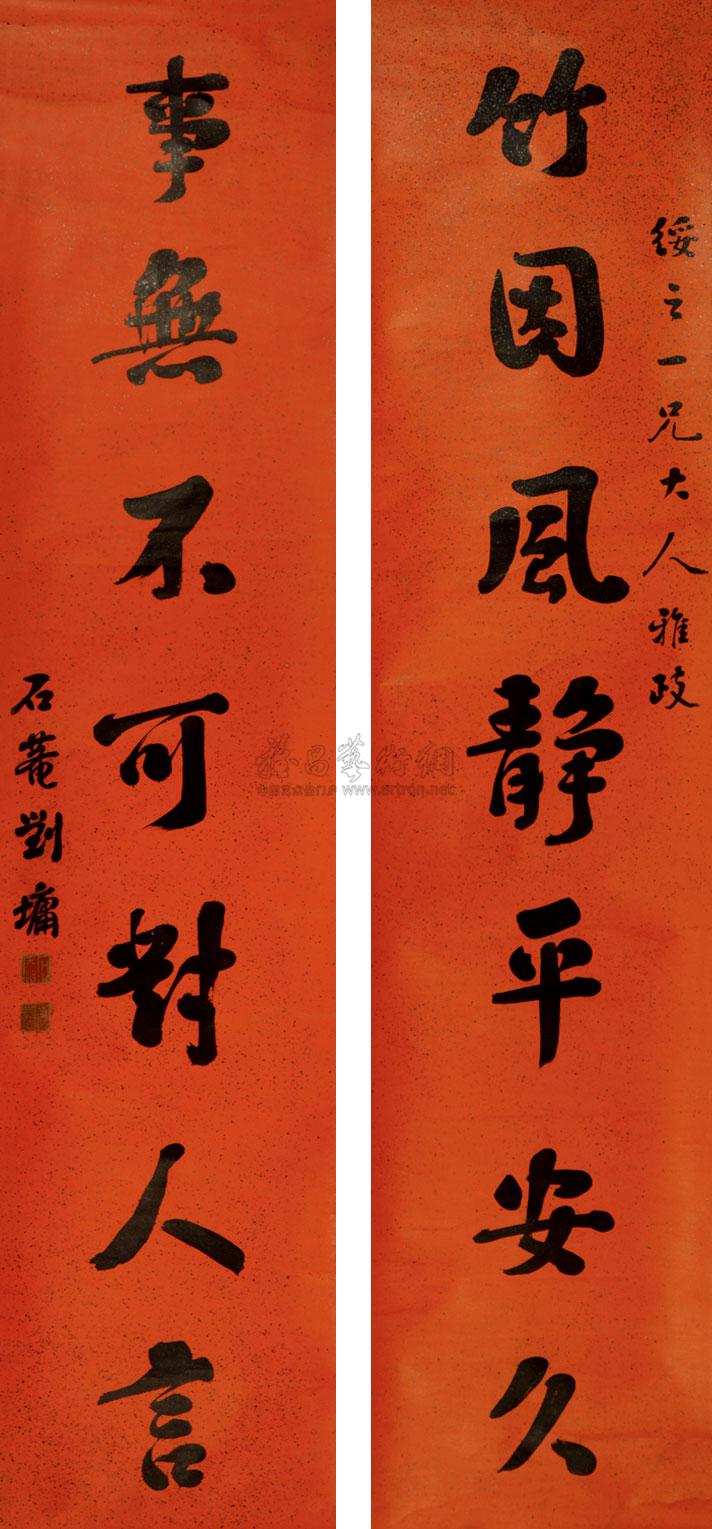 綏之一兄大人雅政
竹因風靜平安久
事無不可對人言
石菴劉墉
雅昌藝術網
www.artron.net